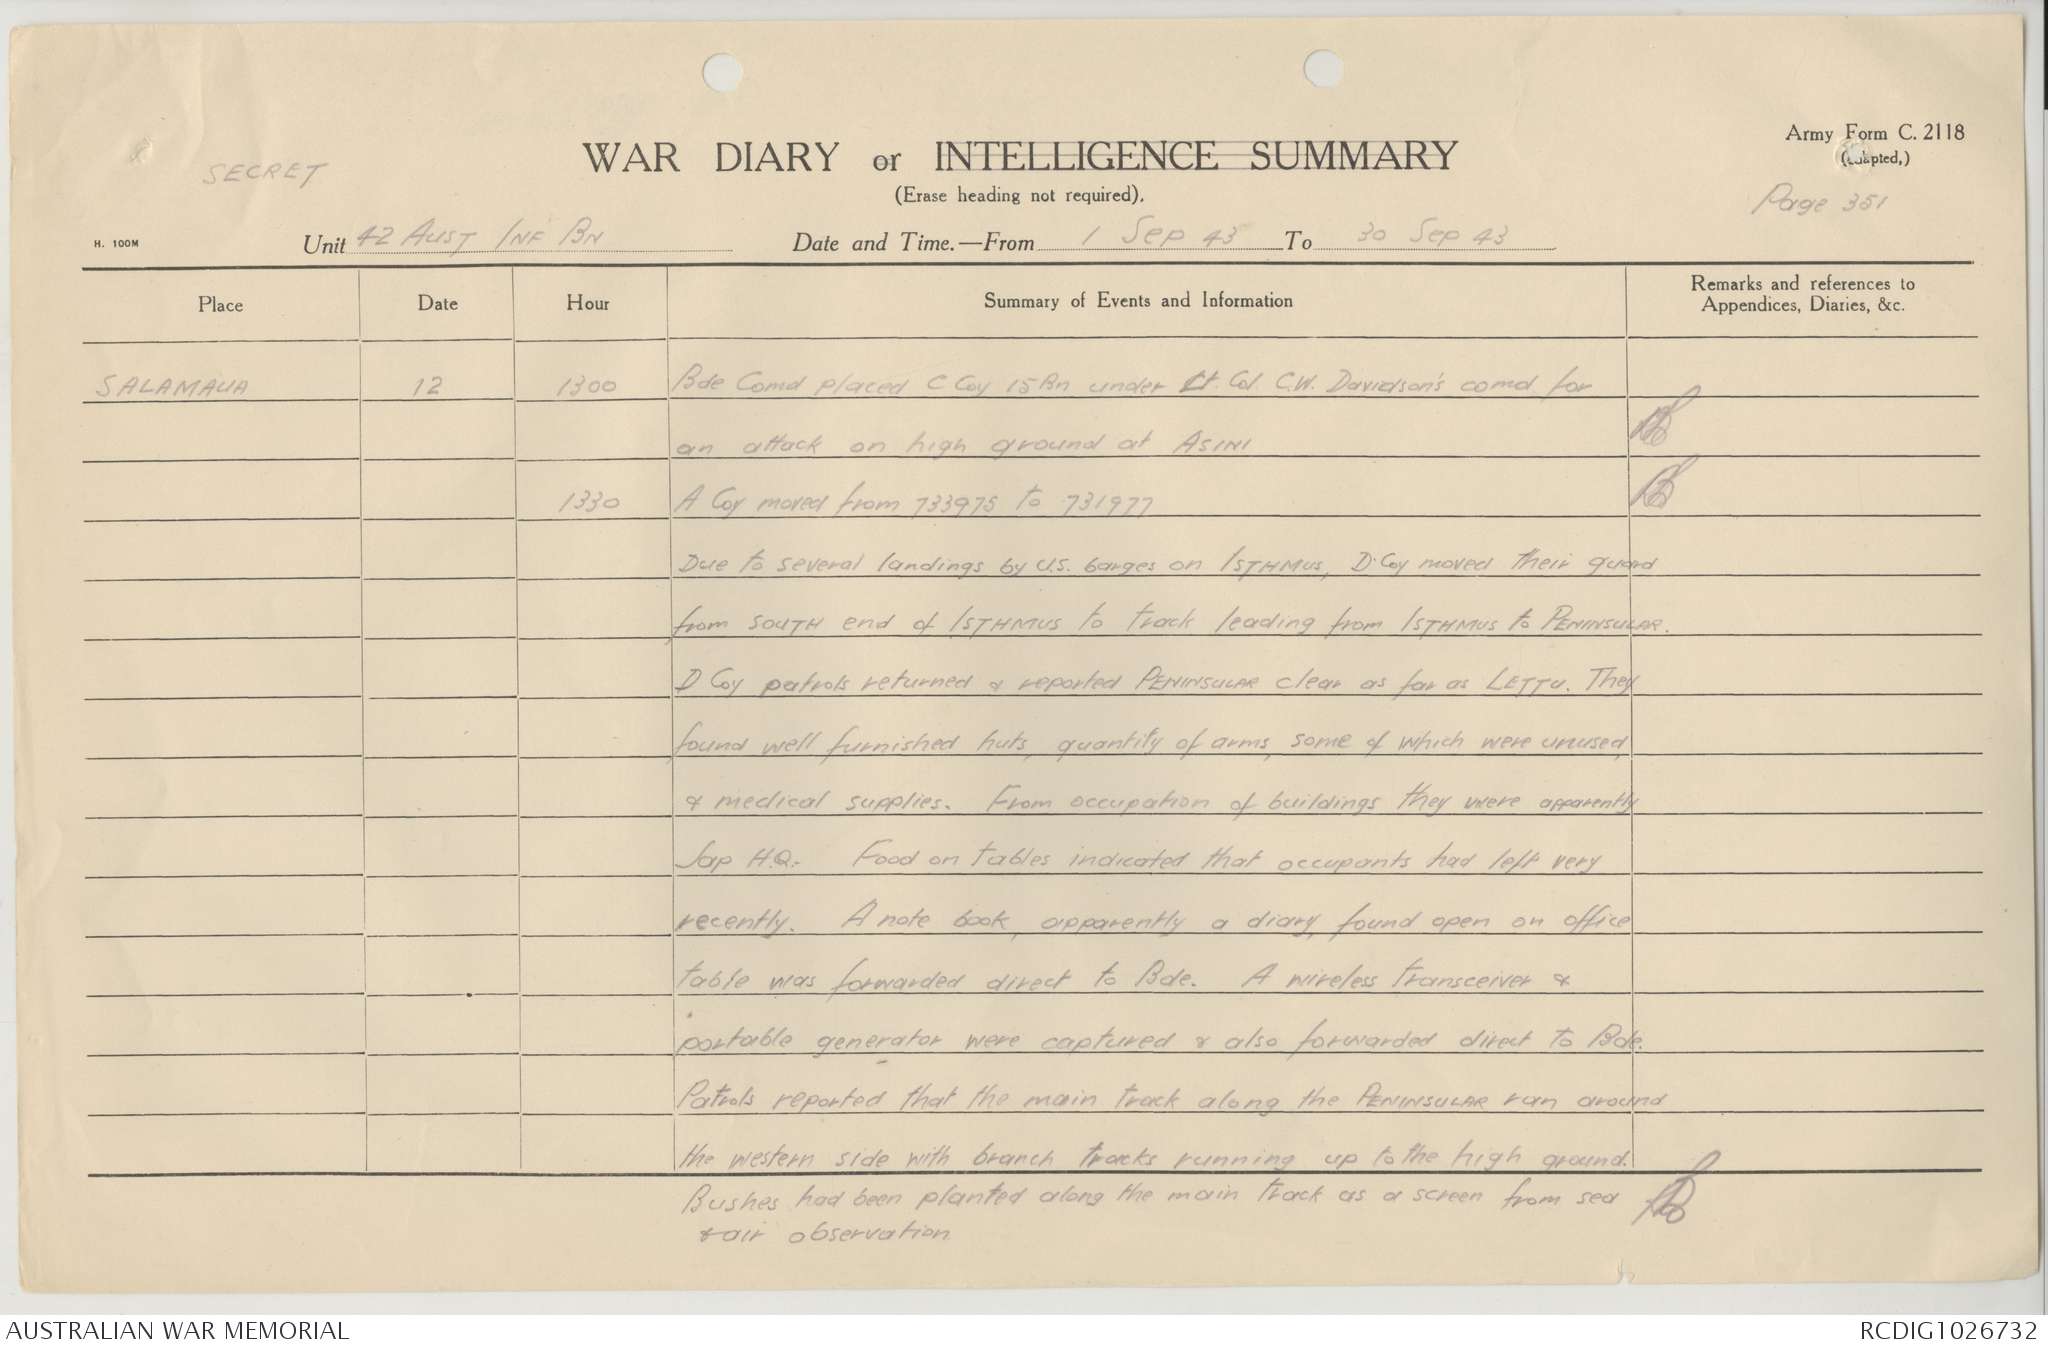 Army Form C. 2118
(adapted,)
SECRET
WAR DIARY or INTELLIGENCE SUMMARY
(Erase heading not required).
Page 351
H. 100M
Unit 42 AUST INF BN Date and Time.—From 1 Sep 43 To 30 Sep 43
Place Date Hour Summary of Events and Information Remarks and references to
Appendices, Diaries, &c.
SALAMAUA 12 1300 Bde Comd placed C Coy 15 Bn under Lt. Col. C.W. Davidson's comd for
an attack on high ground at ASINI
1330 A Coy moved from 733975 to 731977
Due to several landings by U.S. barges on ISTHMUS, D Coy moved their guard
from SOUTH end of ISTHMUS to track leading from ISTHMUS to PENINSULAR.
D Coy patrols returned & reported PENINSULAR clear as far as LETTU. They
found well furnished huts, quantity of arms, some of which were unused,
& medical supplies. From occupation of buildings they were apparently
Jap H.Q. Food on tables indicated that occupants had left very
recently. A note book, apparently a diary, found open on office
table was forwarded direct to Bde. A wireless transceiver &
portable generator were captured & also forwarded direct to Bde.
Patrols reported that the main track along the PENINSULAR ran around
the western side with branch tracks running up to the high ground.
Bushes had been planted along the main track as a screen from sea
& air observation
AUSTRALIAN WAR MEMORIAL
RCDIG1026732